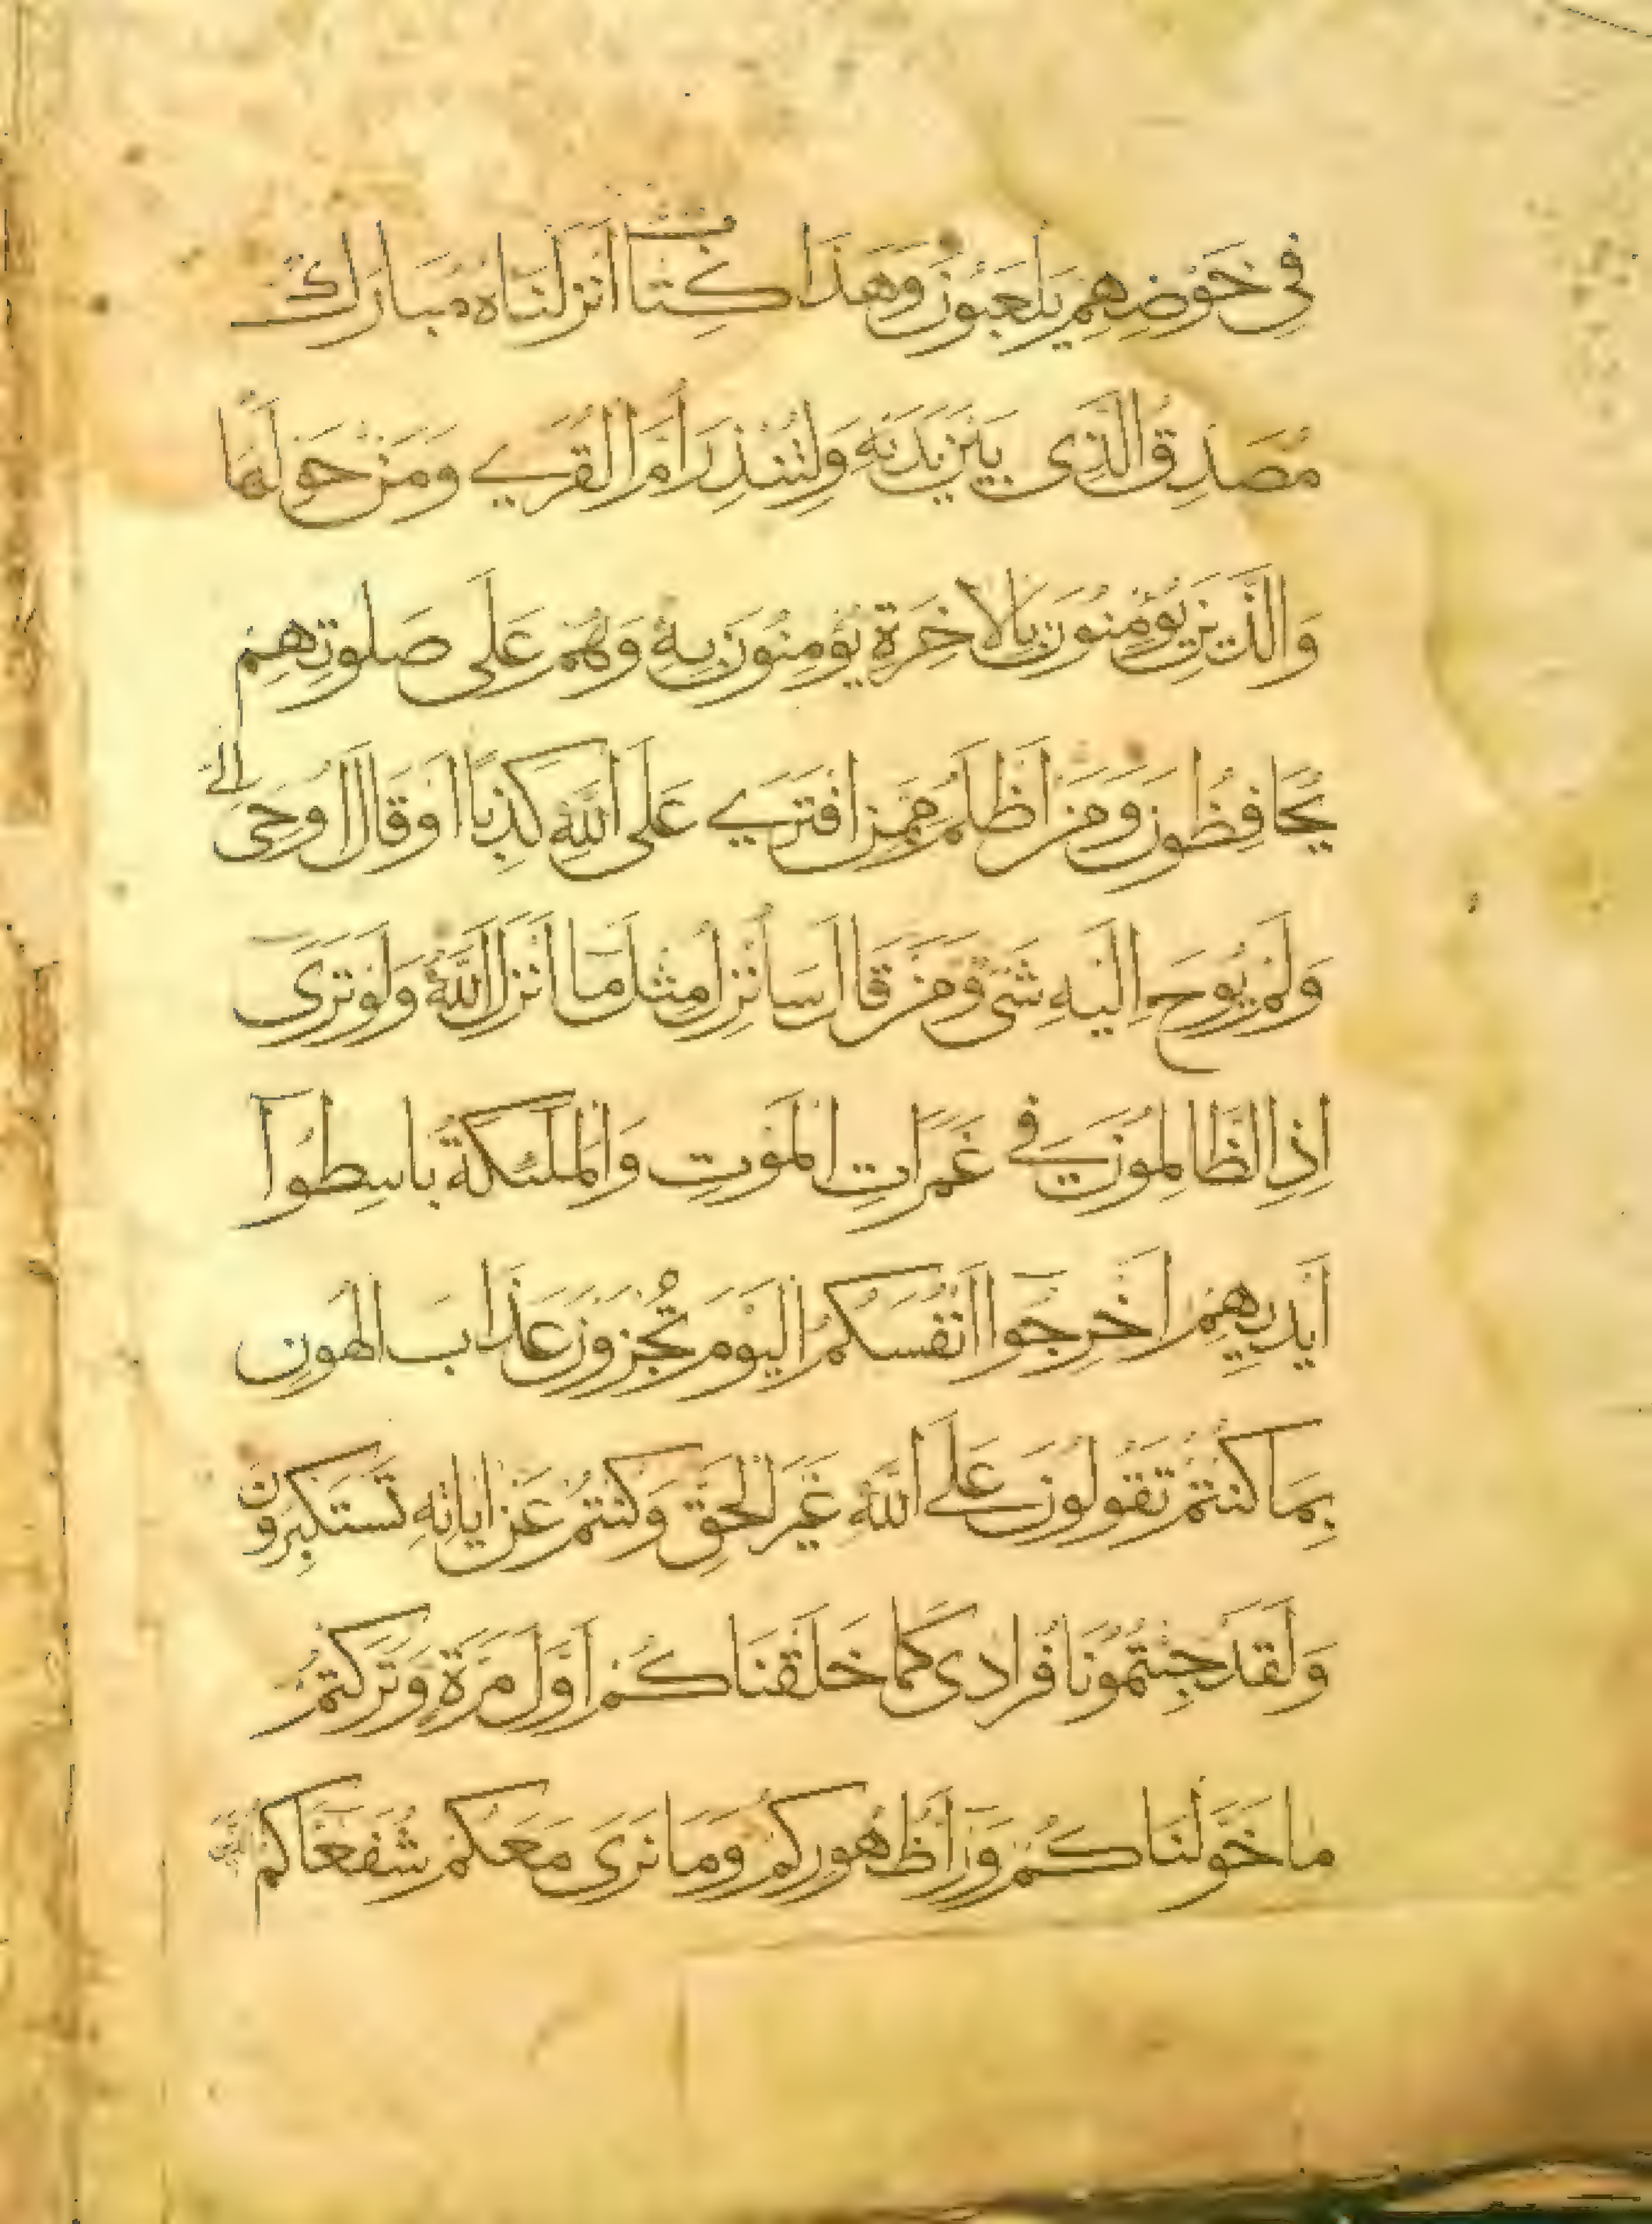 فِي خَوْضِهِمْ يَلْعَبُونَ وَهَذَا كِتَابٌ أَنْزَلْنَاهُ مُبَارَكٌ
مُصَدِّقُ الَّذِي بَيْنَ يَدَيْهِ وَلِتُنْذِرَ أُمَّ الْقُرَى وَمَنْ حَوْلَهَا
وَالَّذِينَ يُؤْمِنُونَ بِالْآخِرَةِ يُؤْمِنُونَ بِهِ وَهُمْ عَلَى صَلَوتِهِمْ
يُحَافِظُونَ وَمَنْ أَظْلَمُ مِمَّنِ افْتَرَى عَلَى اللَّهِ كَذِبًا أَوْ قَالَ أُوحِيَ إِلَيَّ
وَلَمْ يُوحَ إِلَيْهِ شَيْءٌ وَمَنْ قَالَ سَأُنْزِلُ مِثْلَ مَا أَنْزَلَ اللَّهُ وَلَوْ تَرَى
إِذِ الظَّالِمُونَ فِي غَمَرَاتِ الْمَوْتِ وَالْمَلَئِكَةُ بَاسِطُوا
أَيْدِيهِمْ أَخْرِجُوا أَنْفُسَكُمُ الْيَوْمَ تُجْزَوْنَ عَذَابَ الْهُونِ
بِمَا كُنْتُمْ تَقُولُونَ عَلَى اللَّهِ غَيْرَ الْحَقِّ وَكُنْتُمْ عَنْ ايَاتِهِ تَسْتَكْبِرُونَ
وَلَقَدْ جِئْتُمُونَا فُرَادَى كَمَا خَلَقْنَاكُمْ أَوَّلَ مَرَّةٍ وَتَرَكْتُمْ
مَا خَوَّلْنَاكُمْ وَرَاءَ ظُهُورِكُمْ وَمَا نَرَى مَعَكُمْ شُفَعَاكُمُ